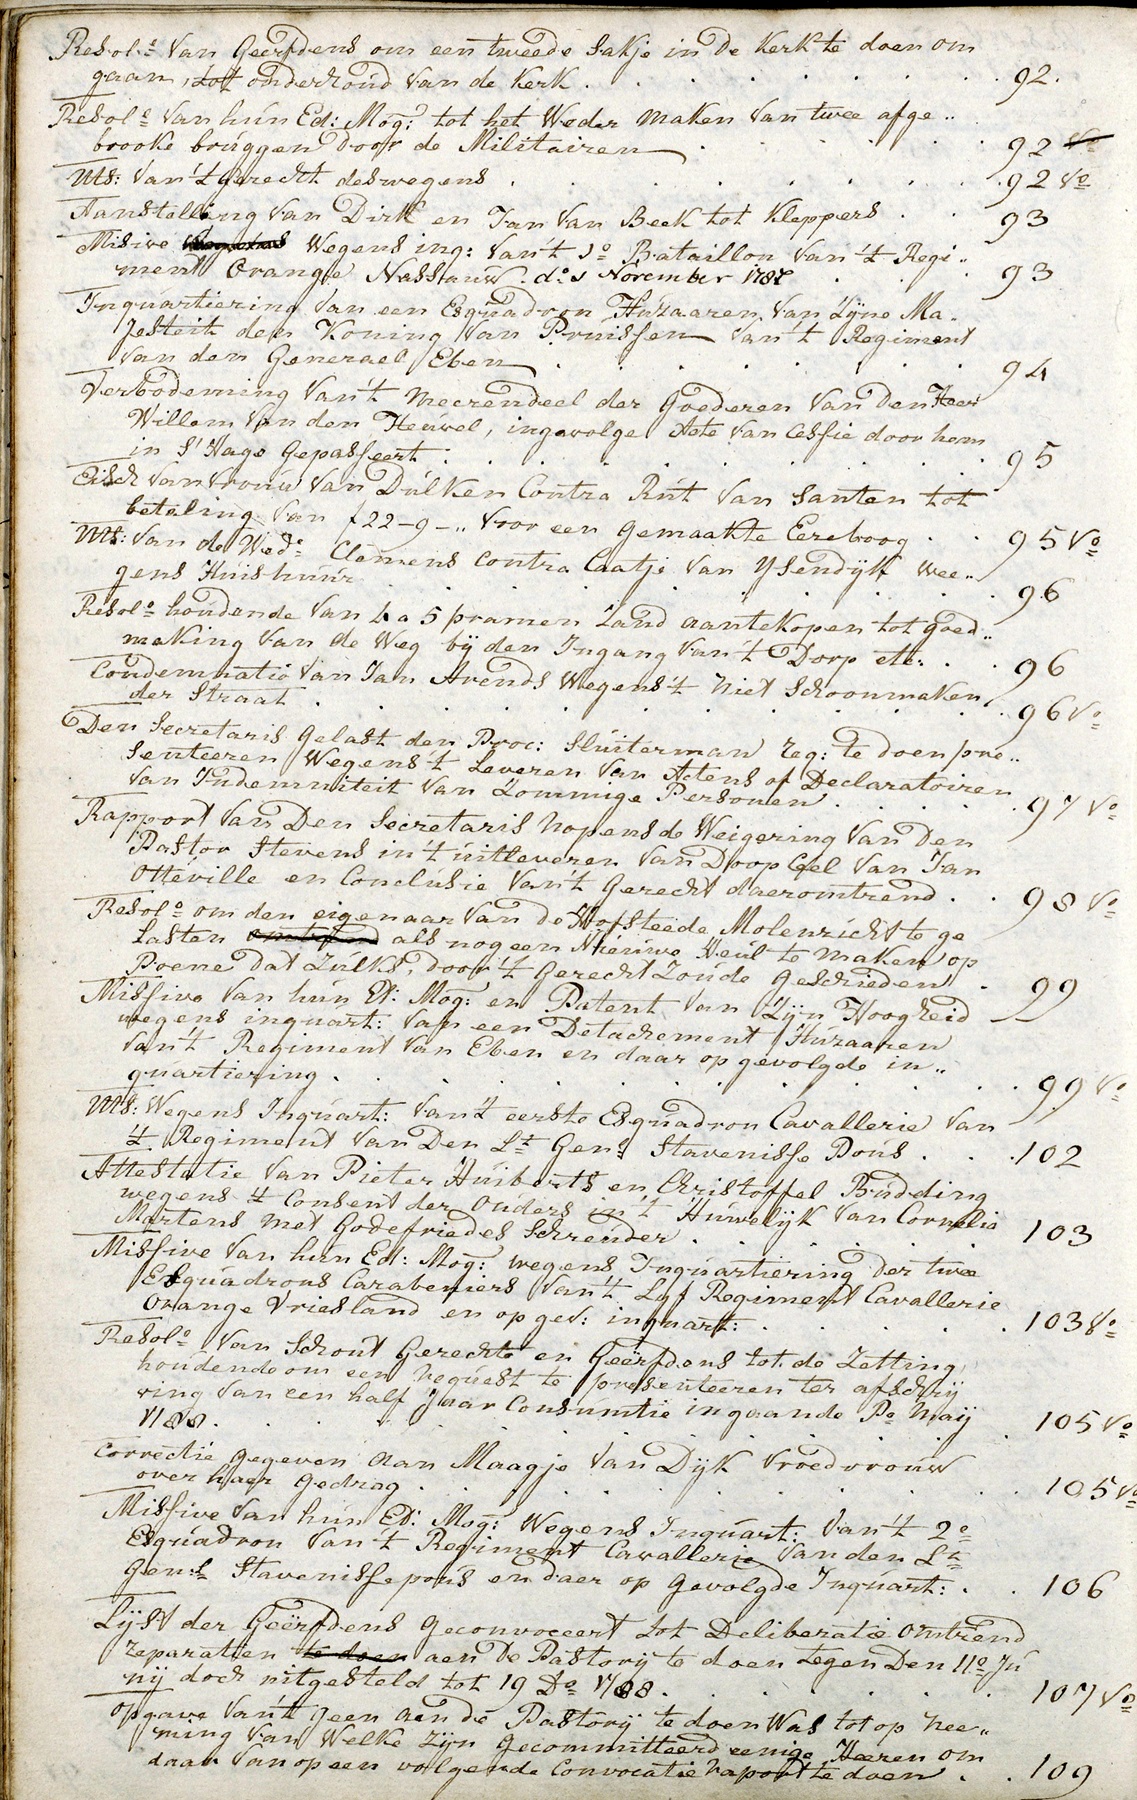 Resol.s Van Geerfdens om een tweede sakje in de kerk te doen om
gaan, tot onderhoud van de kerk . . . . . . 92.
Resol.e Van hún Ed: Mog: tot het Weder maken Van twee afge..
brooke brúggen door de Militairen . . . . . 92
Ms: Van 't gerecht deswegens . . . . . . 92 Vo
Aanstelling Van Dirk en Jan Van Beek tot Kleppers . . 93
Misive Wegens inq: Van 't 1o Bataillon Van 't Regi..
ment Orange Nassauw. d: 1 November 1787 . . 93
Inquartiering Van een Esquadron Húzaaren Van Zijne Ma..
Jesteit den Koning Van Pruissen Van 't Regiment
Van den Generael Eben . . . . . . 94
Verbodeming Van't meerendeel der Goederen Van Den Heer
Willem Van den Heúvel, ingevolge Acte Van Cessie door hem
in S'Hage Gepasseert . . . . . . 95
Eisch Van Vrouw Van Dúlken Contra Rút Van Santen tot
betaling Van f 22-9-,, Voor een gemaakte Eereboog . . 95 Vo
Ms: Van de Wede Clemens contra Caatje Van Ysendijk wee..
gens Húishúúr . . . . . . 96
Resol.e houdende Van 4 a 5 pramen Land aantekopen tot goed..
making Van de Weg bij den Ingang Van 't Dorp etc: . . 96
Condemnatie Van Jan Arends Wegens 't niet schoonmaken
der Straat . . . . . . 96 Vo
Den Secretaris Gelast den Proc: Slúiterman req: te doen pre..
senteeren Wegens 't Leveren Van Actens of Declaratoiren
Van Indemniteit Van Zommige Personen . . . . . 97 Vo
Rapport Van Den Secretaris nopens de Weigering Van Den
Pastor Stevens in 't uitleveren Van Doop Cel Van Jan
Otteville en Conclúsie Van't Gerecht daeromtrend . . 98 Vo
Resol.e om den eigenaar Van de Hofsteede Molenzicht te ge
Lasten als nog een Nieuwe Heúl te maken op
Poene dat Zúlks, door 't Gerecht Zoúde Geschieden . 99
Missive Van hún Ed: Mog: en Patent Van Zijn Hoogheid
wegens inquart: Van een Detachement Húzaaren
Van't Regiment Van Eben en daar op gevolgde in..
quartiering . . . . . . 99 Vo
Ms: Wegens Inquart: Van't eerste Esquadron Cavallerie Van
't Regiment Van Den Lt Genl Stavenisse Pous . . . 102
Attestatie Van Pieter Húiberts en Christoffel Búdding
wegens 't Consent der Ouders in 't Húwelijk Van Cornelia
Martens met Godefriedes Schrender . . . . . 103
Missive Van hún Ed: Mog: wegens Inquartiering der twee
Esquadrons Carabeniers Van't Lyf Regiment Cavallerie
Orange Vriesland en op gev: inquart: . . . . . 103 Vo
Resol.o Van Schout Gerechte en Geërfdens tot de Zetting
houdende om een request te presenteeren ter afschrij
ving Van een half Jaar Consúmtie ingaande Po Maij
1788 . . . . . . 105 Vo
Correctie gegeven Aan Maagje Van Dijk Vroedvrouw
over haer gedrag . . . . . . 105 Vo
Missive Van hún Ed: Mog: Wegens Inquart: Van't 2o
Esquadron Van't Regiment Cavallerie Van den Lt
Gen:l Stavenisse poús en daer op gevolgde Inquart: . . 106
Lijst der Geërfdens Geconvoceert tot Deliberatie Omtrend
reparatien te doen aen De Pastory te doen tegen Den 11o Jú
nij doch uitgesteld tot 19 Do 1788 . . . . . 107 Vo
Opgave Van't geen aen dé Pastorij te doen Was tot op nee..
ming Van Welke Zijn gecommitteerd eenige Heeren om
daar Van op een volgende Convocatie raport te doen . . 109